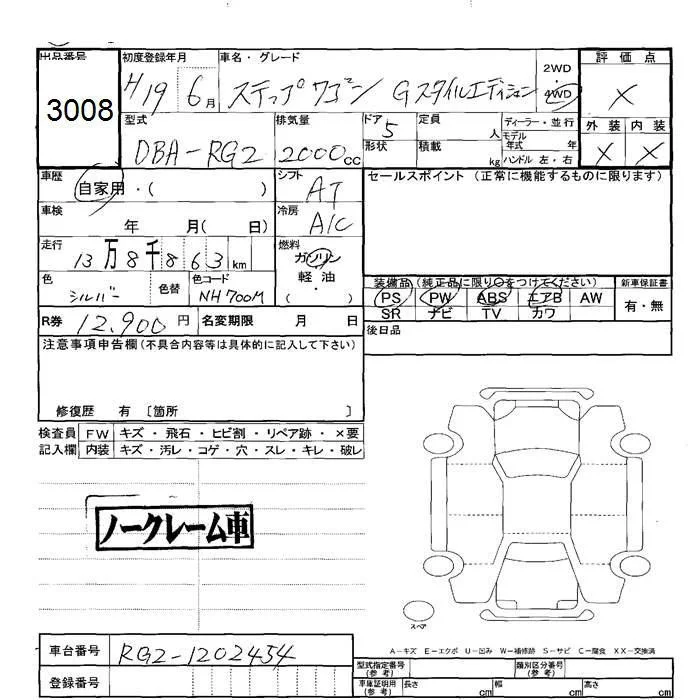 出品番号 初度登録年月 車名・グレード 2WD 4WD 評価点
3008 H19 6月 ステップワゴン Gスタイルエディション ×
型式 排気量 ドア 5 定員 人 ディーラー・並行 外装 内装
DBA-RG2 2000cc 形状 積載 kg モデル年式 年 × ×
ハンドル 左・右
車歴 自家用・( ) シフト AT セールスポイント (正常に機能するものに限ります)
車検 年 月( 日) 冷房 A/C
走行 13万8千863km 燃料 ガソリン
色 シルバー 色替 色コード NH700M 軽油 ( )
装備品(純正品に限り○をつけてください) 新車保証書
PS PW ABS エアB AW 有・無
SR ナビ TV カワ
R券 12,900円 名変期限 月 日 後日品
注意事項申告欄(不具合内容等は具体的に記入して下さい)
修復歴 有 〔箇所 〕
検査員 FW キズ・飛石・ヒビ割・リペア跡・×要
記入欄 内装 キズ・汚レ・コゲ・穴・スレ・キレ・破レ
ノークレーム車
スペア
A-キズ E-エクボ U-凹み W-補修跡 S-サビ C-腐食 XX-交換済
車台番号 RG2-1202454
登録番号
型式指定番号 (参考) 類別区分番号 (参考)
車庫証明用 (参考) 長さ cm 幅 cm 高さ cm